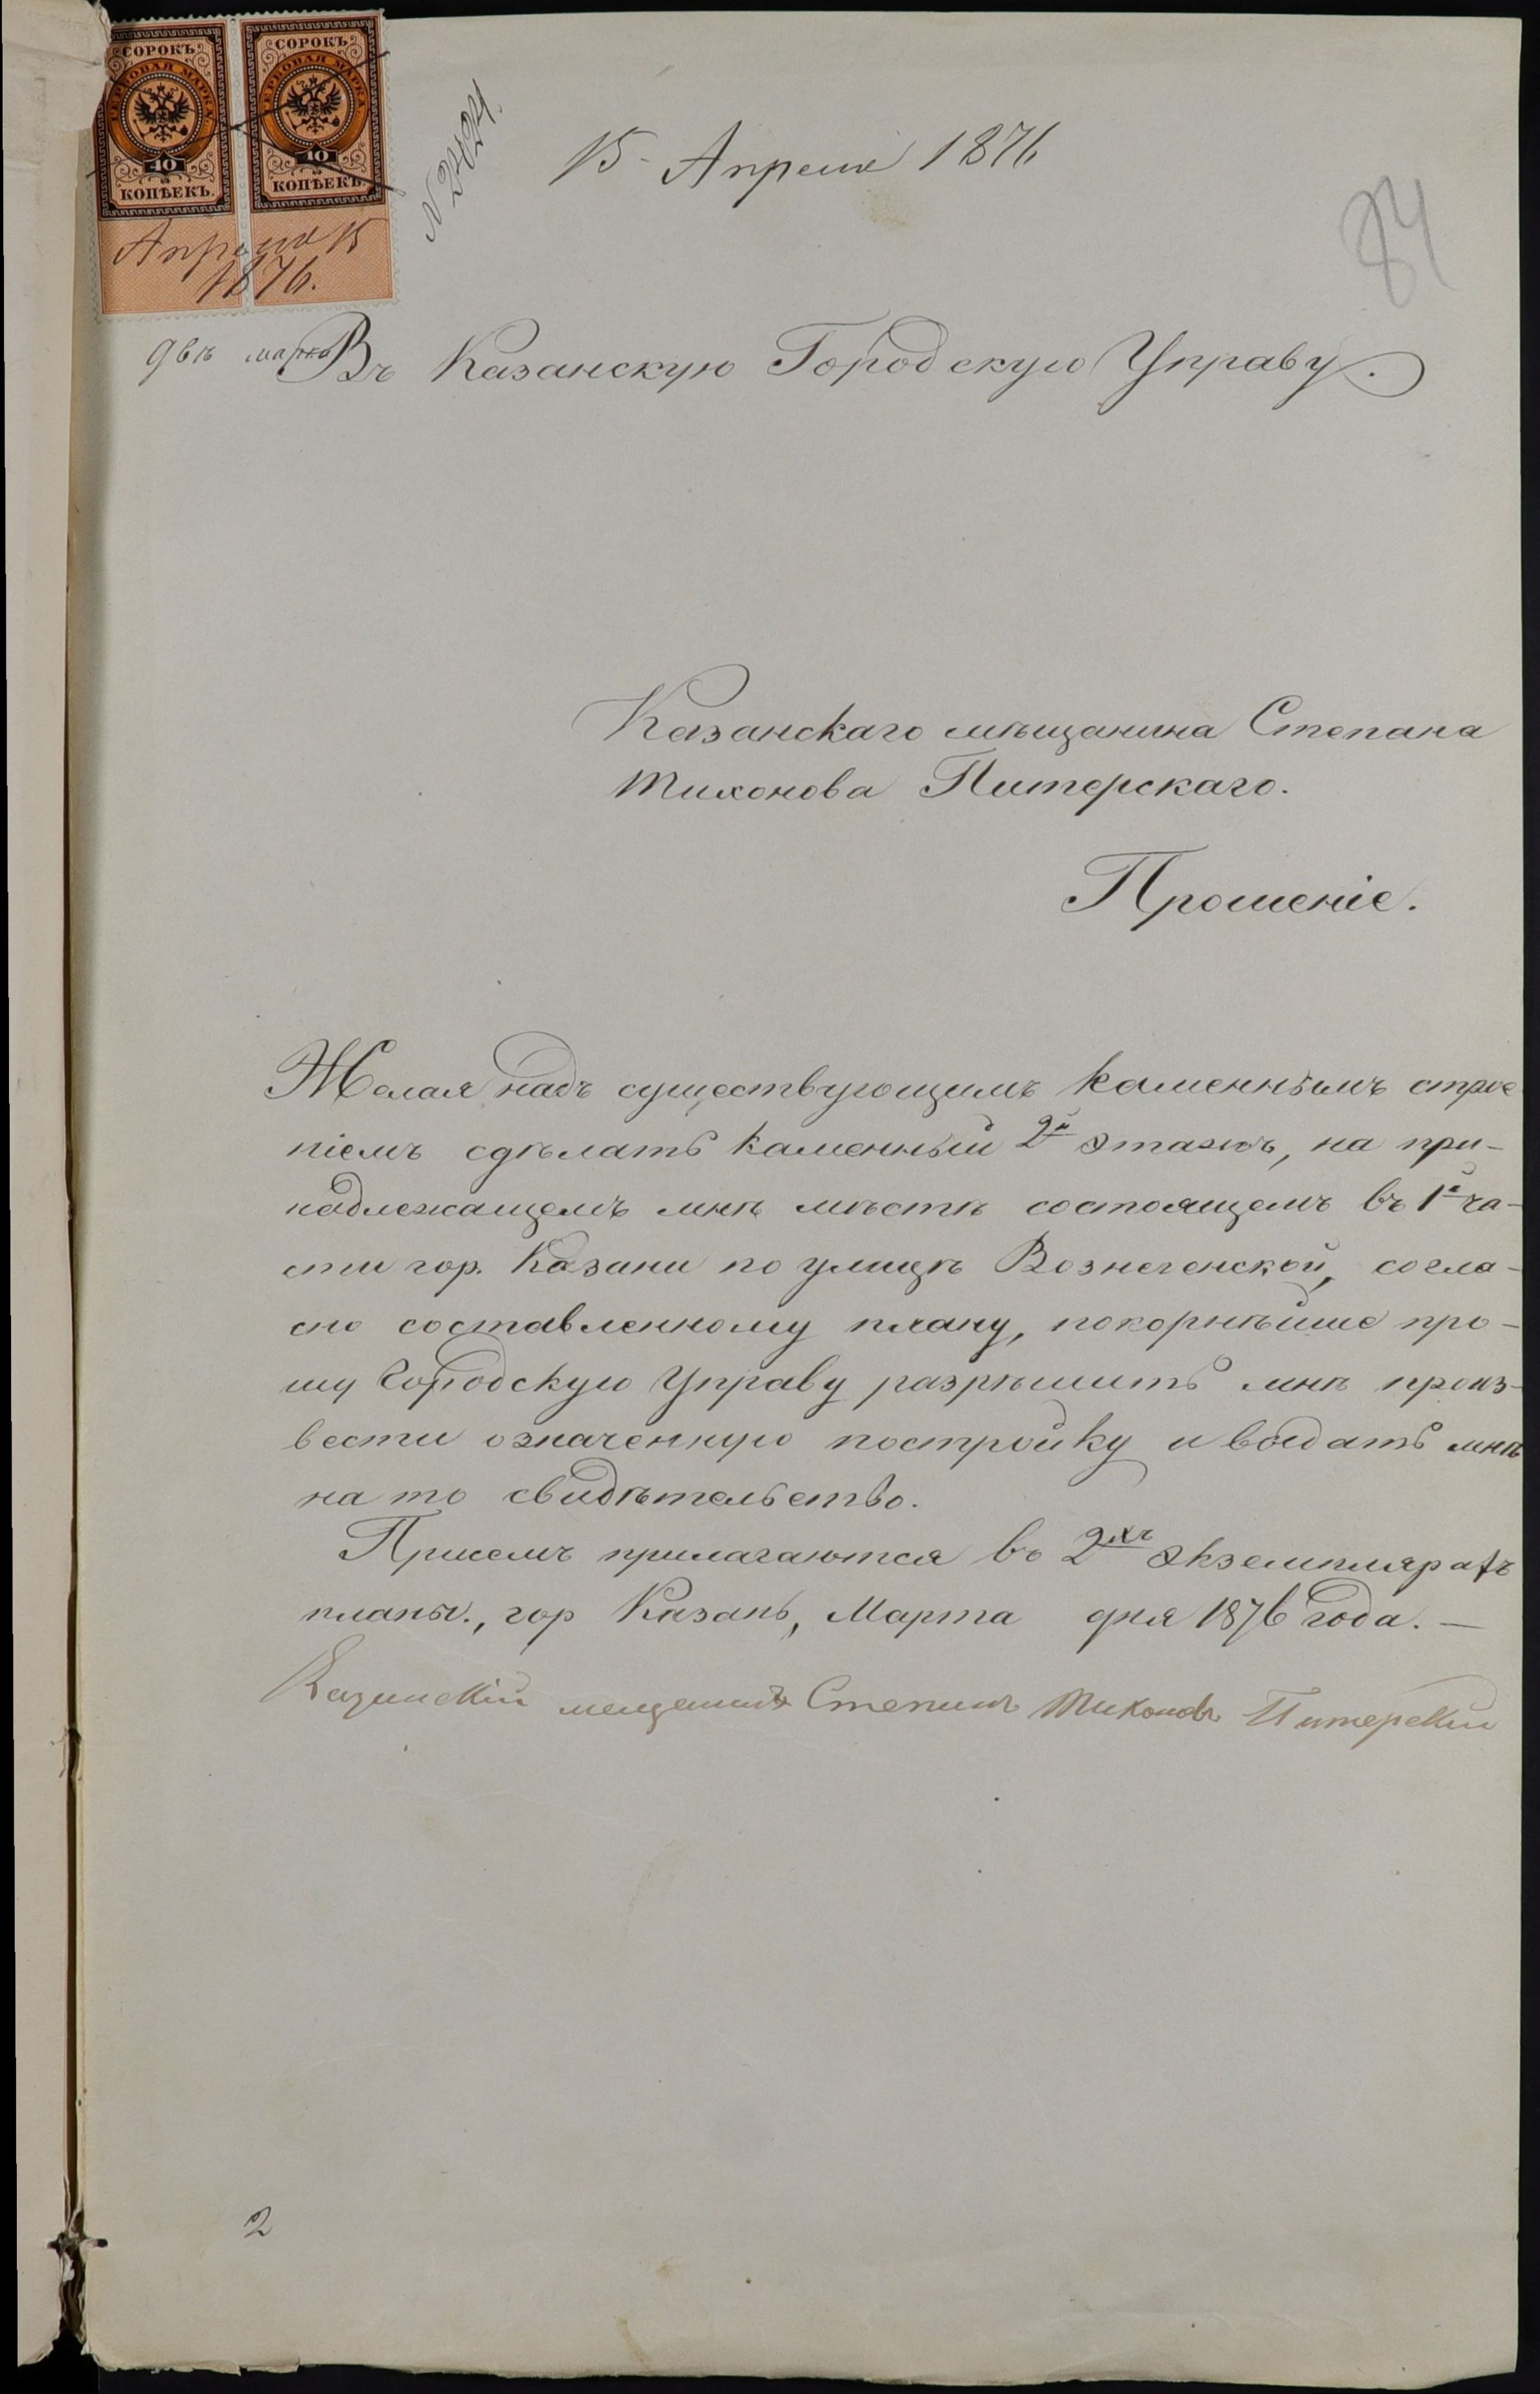 СОРОКЪ СОРОКЪ
ГЕРБОВАЯ МАРКА ГЕРБОВАЯ МАРКА
40 40
КОПѢЕКЪ. КОПѢЕКЪ.
Апреля 15
1876.
N 2424.
15 Апреля 1876
84
двѣ марки
Въ Казанскую Городскую Управу.
Казанскаго мѣщанина Степана
Тихонова Питерскаго.
Прошеніе.
Желая надъ существующимъ каменнымъ строе
ніемъ сдѣлать каменный 2й этажъ, на при-
надлежащемъ мнѣ мѣстѣ состоящемъ въ 1й ча-
сти гор. Казани по улицѣ Вознесенской, согла-
сно составленному плану, покорнѣйше про-
шу Городскую Управу разрѣшить мнѣ произ-
вести означенную постройку и выдать мнѣ
на то свидѣтельство.
Присемъ прилагаются въ 2хъ экземплярахъ
планы., гор Казань, Марта дня 1876 года. —
Казанскій мещанинъ Степанъ Тихоновъ Питерскій
2